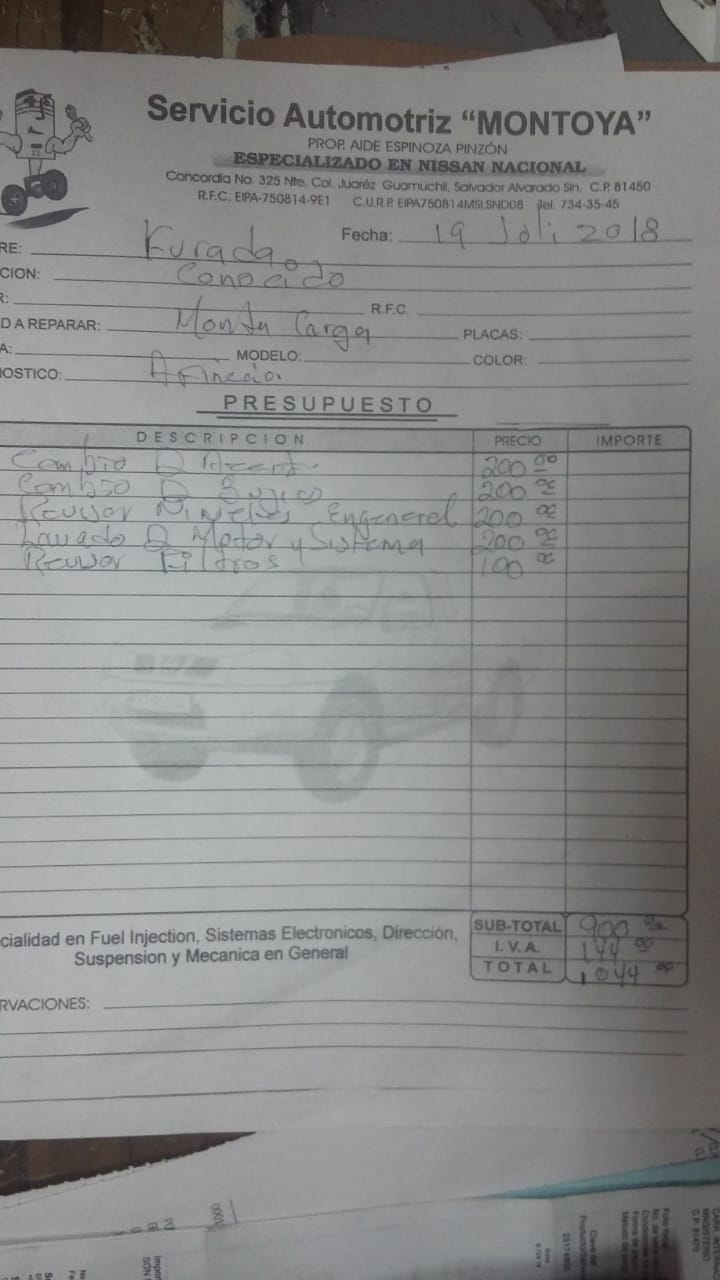 Servicio Automotriz “MONTOYA”
PROP. AIDE ESPINOZA PINZÓN
ESPECIALIZADO EN NISSAN NACIONAL
Concordia No. 325 Nte. Col. Juaréz Guamuchil, Salvador Alvarado Sin. C.P. 81450
R.F.C. EIPA-750814-9E1 C.U.R.P. EIPA750814MSLSND08 Tel. 734-35-45
Fecha: 19 Joli 2018
RE: Kurada
CION: Conocido
R: R.F.C.
D A REPARAR: Monta Carga PLACAS:
A: MODELO: COLOR:
OSTICO:
PRESUPUESTO
DESCRIPCION PRECIO IMPORTE
Cambio D 200 00
Cambio D 200 00
Niveles En general 200 00
Lavado D Motor y Sistema 200 00
Filtros 100 00
cialidad en Fuel Injection, Sistemas Electronicos, Dirección,
Suspension y Mecanica en General
SUB-TOTAL 900 00
I.V.A. 144 00
TOTAL 1044 00
RVACIONES: